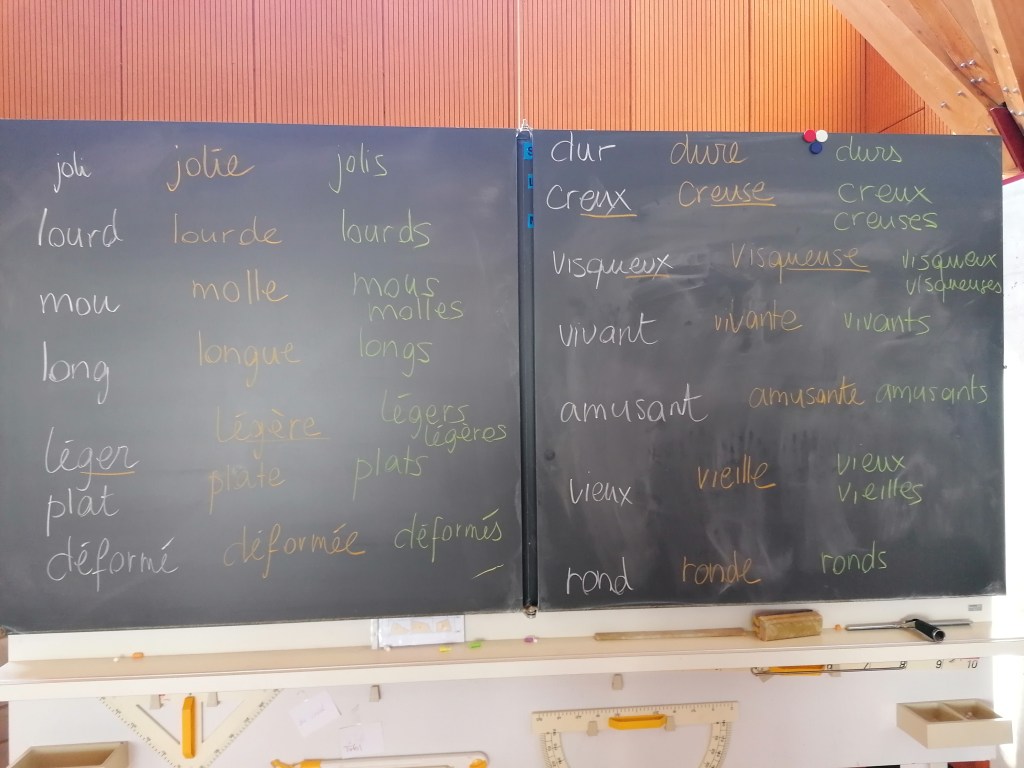 joli jolie jolis
lourd lourde lourds
mou molle mous
molles
long longue longs
léger légère légers
légères
plat plate plats
déformé déformée déformés
dur dure durs
creux creuse creux
creuses
visqueux visqueuse visqueux
visqueuses
vivant vivante vivants
amusant amusante amusants
vieux vieille vieux
vieilles
rond ronde ronds
7 8 9 10